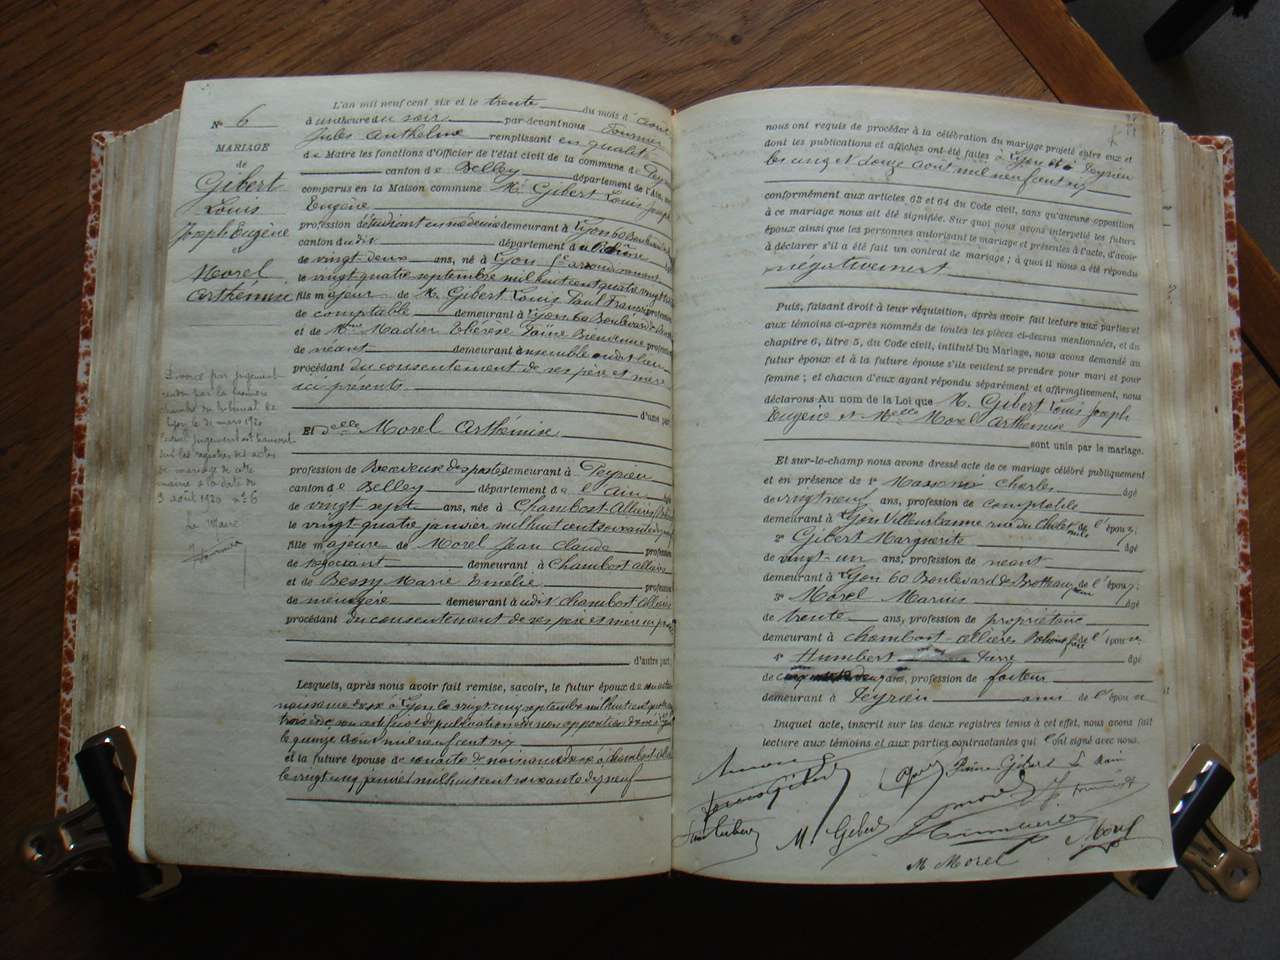 N° 6
MARIAGE
de
Gibert
Louis
Joseph Eugène
et
Morel
Arthémise
Divorcé par jugement
rendu par la première
chambre du tribunal de
Lyon le 31 mars 1920
jugement transcrit
sur les registres des actes
de mariage de cette
mairie à la date du
3 août 1920 n° 6
Le Maire
L'an mil neuf cent six et le trente du mois d'août
à une heure du soir par devant nous Fournier
Jules Anthelme remplissant en qualité
de Maire les fonctions d'Officier de l'état civil de la commune de Peyrieu
canton de Belley département de l'Ain, ont
comparus en la Maison commune M. Gibert Louis Joseph
Eugène
profession d'étudiant en médecine demeurant à Lyon 60 Boulevard
canton dudit département du Rhône
de vingt-deux ans, né à Lyon 6e arrondissement
le vingt quatre septembre mil huit cent quatre vingt
fils majeur de M. Gibert Louis Paul Francis profession
de comptable demeurant à Lyon 60 Boulevard
et de Mme Madier Thérèse Païne Bienvenue profession
de néant demeurant ensemble audit lieu
procédant du consentement de ses père et mère
ici présents
d'une part
Et delle Morel Arthémise
profession de Receveuse des postes demeurant à Peyrieu
canton de Belley département de l'Ain âgée
de vingt sept ans, née à Chambost-Allières
le vingt quatre janvier mil huit cent soixante dix neuf
fille majeure de Morel Jean Claude profession
de négociant demeurant à Chambost Allières
et de Bessy Marie Emélie profession
de ménagère demeurant audit Chambost Allières
procédant du consentement de ses père et mère
d'autre part
Lesquels, après nous avoir fait remise, savoir, le futur époux de son acte de
naissance dressé à Lyon le vingt cinq septembre mil huit cent quatre vingt
trois et de son certificat de publication et de non opposition dressé à Lyon
le quinze août mil neuf cent six
et la future épouse de son acte de naissance dressé à Chambost-Allières
le vingt cinq janvier mil huit cent soixante dix neuf
nous ont requis de procéder à la célébration du mariage projeté entre eux et
dont les publications et affiches ont été faites à Lyon et à Peyrieu
les cinq et douze août mil neuf cent six
conformément aux articles 63 et 64 du Code civil, sans qu'aucune opposition
à ce mariage nous ait été signifiée. Sur quoi nous avons interpellé les futurs
époux ainsi que les personnes autorisant le mariage et présentes à l'acte, d'avoir
à déclarer s'il a été fait un contrat de mariage ; à quoi il nous a été répondu
négativement
Puis, faisant droit à leur réquisition, après avoir fait lecture aux parties et
aux témoins ci-après nommés de toutes les pièces ci-dessus mentionnées, et du
chapitre 6, titre 5, du Code civil, intitulé Du Mariage, nous avons demandé au
futur époux et à la future épouse s'ils veulent se prendre pour mari et pour
femme ; et chacun d'eux ayant répondu séparément et affirmativement, nous
déclarons Au nom de la Loi que M. Gibert Louis Joseph
Eugène et Melle Morel Arthémise
sont unis par le mariage.
Et sur-le-champ nous avons dressé acte de ce mariage célébré publiquement
et en présence de 1° Charles âgé
de vingt neuf ans, profession de comptable
demeurant à Lyon Villeurbanne rue du de l'époux ;
2° Gibert Marguerite âgé
de vingt-un ans, profession de néant
demeurant à Lyon 60 Boulevard des Brotteaux de l'époux ;
3° Morel Marius âgé
de trente ans, profession de propriétaire
demeurant à Chambost-Allières Rhône frère de l'épouse
4° Humbert Pierre âgé
de ans, profession de facteur
demeurant à Peyrieu ami de l'épouse
Duquel acte, inscrit sur les deux registres tenus à cet effet, nous avons fait
lecture aux témoins et aux parties contractantes qui l'ont signé avec nous.
M. Gibert
Humbert
Morel
M Morel